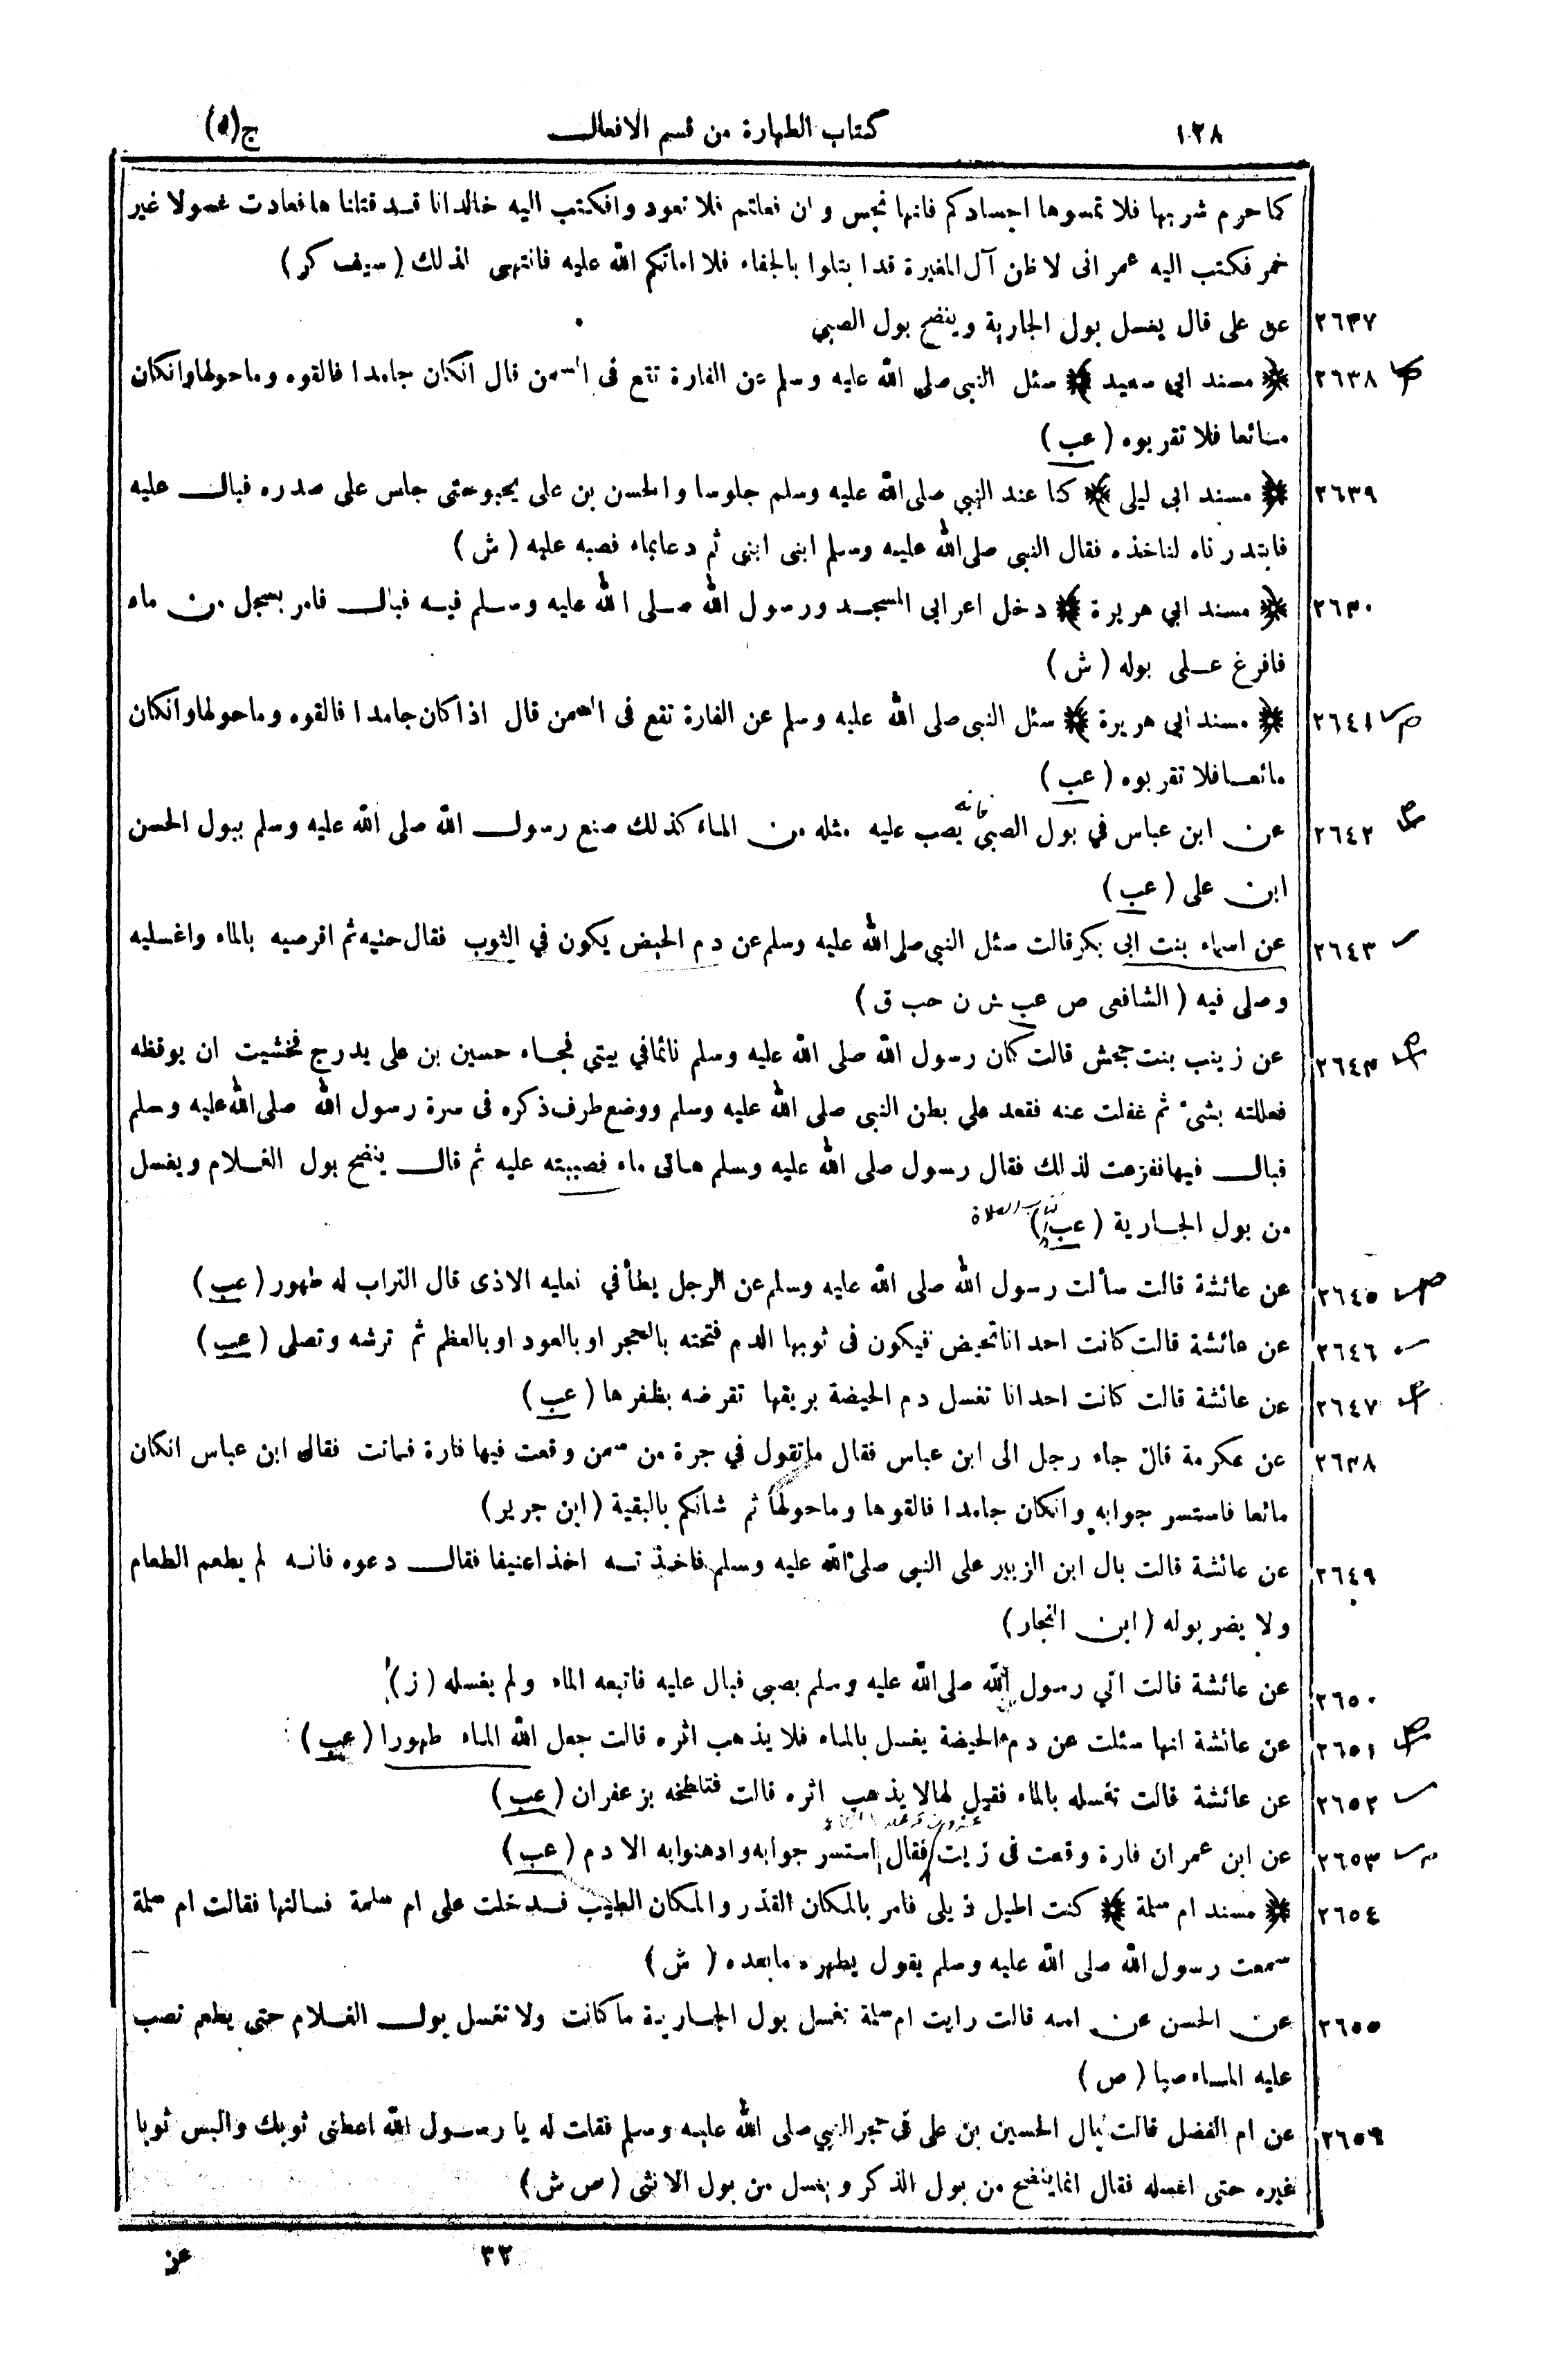 ١٢٨ كتاب الطهارة من قسم الافعال ج(٥)
كما حرم شربها فلا تمسوها اجسادكم فانها نجس و ان فعلتم فلا تعود وافكتب اليه خالد انا قد قتلنا ها فعادت غسولا غير
خمر فكتب اليه عمر انى لا ظن آل المغيرة قد ا بتلوا بالجفاء فلا اماتكم الله عليه فانتهى لذلك (سيف كر)
٢٦٣٧ عن على قال يغسل بول الجارية وينضح بول الصبي
٢٦٣٨ ﴿ مسند ابي سعيد ﴾ سئل النبى صلى الله عليه وسلم عن الفارة تقع فى السمن قال انكان جامدا فالقوه وماحولهاوانكان
مائعا فلا تقربوه (عب)
٢٦٣٩ ﴿ مسند ابى ليلى ﴾ كنا عند النبي صلى الله عليه وسلم جلوسا والحسن بن على يحبوحتى جلس على صدره فبال عليه
فابتدرناه لناخذه فقال النبى صلى الله عليه وسلم ابنى ابنى ثم دعابماء فصبه عليه (ش)
٢٦٣٠ ﴿ مسند ابي هريرة ﴾ دخل اعرابى المسجد ورسول الله صلى الله عليه وسلم فيه فبال فامر بسجل من ماء
فافرغ على بوله (ش)
٢٦٤١ ﴿ مسند ابي هريرة ﴾ سئل النبى صلى الله عليه وسلم عن الفارة تقع فى السمن قال اذاكان جامدا فالقوه وماحولهاوانكان
مائعافلا تقربوه (عب)
فانه
٢٦٤٢ عن ابن عباس في بول الصبي يصب عليه مثله من الماء كذلك صنع رسول الله صلى الله عليه وسلم ببول الحسن
ابن على (عب)
٢٦٤٣ عن اسماء بنت ابى بكر قالت سئل النبى صلى الله عليه وسلم عن دم الحيض يكون في الثوب فقال حتيه ثم اقرصيه بالماء واغسليه
وصلى فيه (الشافعى ص عب ش ن حب ق)
٢٦٤٣ عن زينب بنت جحش قالت كان رسول الله صلى الله عليه وسلم نائمافي بيتي فجاء حسين بن على يدرج فخشيت ان يوقظه
فعللته بشئ ثم غفلت عنه فقعد على بطن النبى صلى الله عليه وسلم ووضع طرف ذكره فى سرة رسول الله صلى الله عليه وسلم
فبال فيهاففزعت لذلك فقال رسول صلى الله عليه وسلم هاتى ماء فصببته عليه ثم قال ينضح بول الغلام ويغسل
من بول الجارية (عب)
٢٦٤٥ عن عائشة قالت سألت رسول الله صلى الله عليه وسلم عن الرجل يطأ في نعليه الاذى قال التراب له طهور (عب)
٢٦٤٦ عن عائشة قالت كانت احداناتحيض فيكون فى ثوبها الدم فتحته بالحجر او بالعود اوبالعظم ثم ترشه وتصلى (عب)
٢٦٤٧ عن عائشة قالت كانت احدانا تغسل دم الحيضة بريقها تقرضه بظفرها (عب)
٢٦٣٨ عن عكرمة قال جاء رجل الى ابن عباس فقال ماتقول في جرة من سمن وقعت فيها فارة فماتت فقال ابن عباس انكان
مائعا فاستسر جوابه وانكان جامدا فالقوها وماحولها ثم شانكم بالبقية (ابن جرير)
٢٦٤٩ عن عائشة قالت بال ابن الزبير على النبى صلى الله عليه وسلم فاخذ ته اخذاعنيفا فقال دعوه فانه لم يطعم الطعام
ولا يضر بوله (ابن النجار)
٢٦٥٠ عن عائشة قالت اتي رسول الله صلى الله عليه وسلم بصبى فبال عليه فاتبعه الماء ولم يغسله (ز)
٢٦٥١ عن عائشة انها سئلت عن دم الحيضة يغسل بالماء فلا يذهب اثره قالت جعل الله الماء طهورا (عب)
٢٦٥٢ عن عائشة قالت تغسله بالماء فقيل لهالا يذهب اثره قالت فتلطخه بزعفران (عب)
٢٦٥٣ عن ابن عمران فارة وقعت فى زيت فقال استسر جوابه وادهنوابه الادم (عب)
٢٦٥٤ ﴿ مسند ام سلمة ﴾ كنت اطيل ذيلى فامر بالمكان القذر والمكان الطيب فدخلت على ام سلمة فسالتها فقالت ام سلمة
سمعت رسول الله صلى الله عليه وسلم يقول يطهره مابعده (ش)
٢٦٥٥ عن الحسن عن امه قالت رايت ام سلمة تغسل بول الجارية ماكانت ولا تغسل بول الغلام حتى يطعم تصب
عليه الماء صبا (ص)
٢٦٥٦ عن ام الفضل قالت بال الحسين بن على فى حجر النبي صلى الله عليه وسلم فقلت له يا رسول الله اعطنى ثوبك والبس ثوبا
غيره حتى اغسله فقال انما ينضح من بول الذكر ويغسل من بول الانثى (ص ش)
٣٢ عن